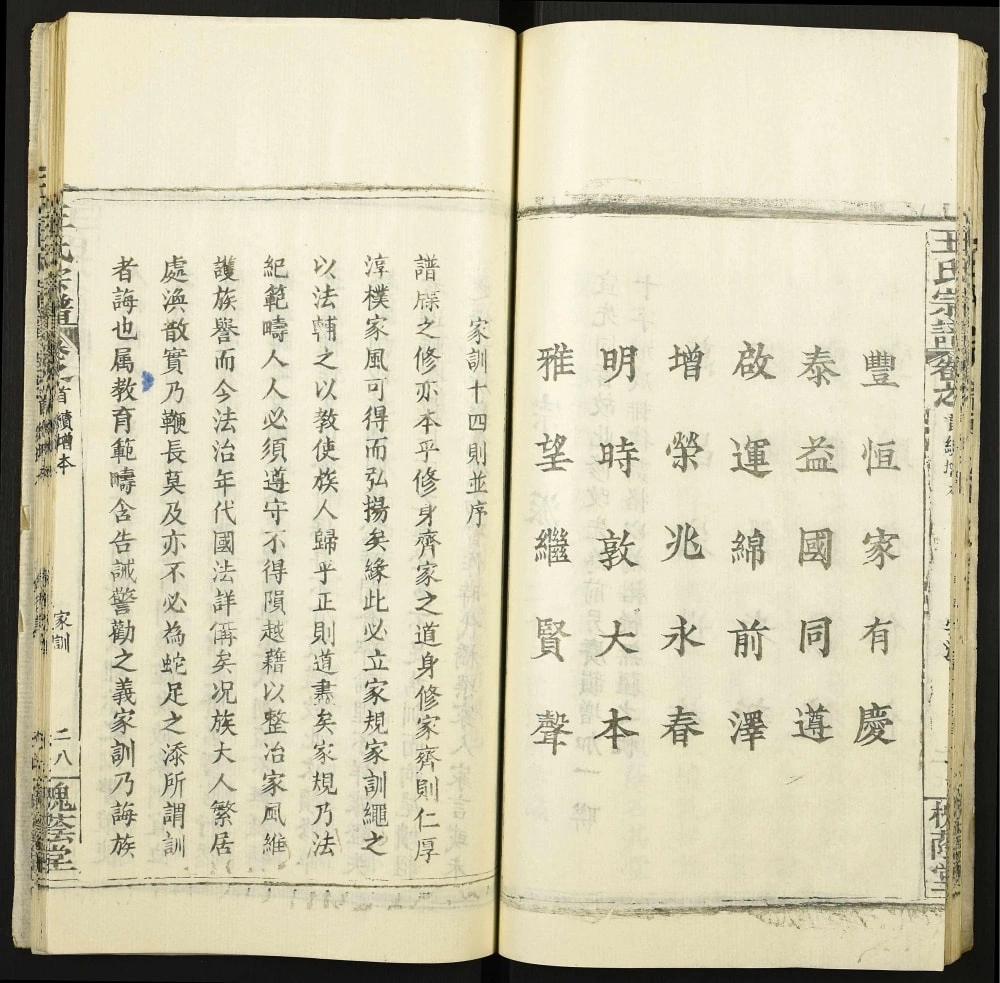 王氏宗譜
卷之首 續增本
豐恒家有慶
泰益國同遵
啟運綿前澤
增榮兆永春
明時敦大本
雅望繼賢聲
槐蔭堂
家訓十四則並序
譜牒之修亦本乎修身齊家之道身修家齊則仁厚
淳樸家風可得而弘揚矣緣此必立家規家訓繩之
以法輔之以教使族人歸乎正則道肅矣家規乃法
紀範疇人人必須遵守不得隕越藉以整治家風維
護族譽而今法治年代國法詳俻矣况族大人繁居
處渙散實乃鞭長莫及亦不必為蛇足之添所謂訓
者誨也属教育範疇含告誡警勸之義家訓乃誨族
王氏宗譜 卷之首 續增本
家訓
二八
槐蔭堂